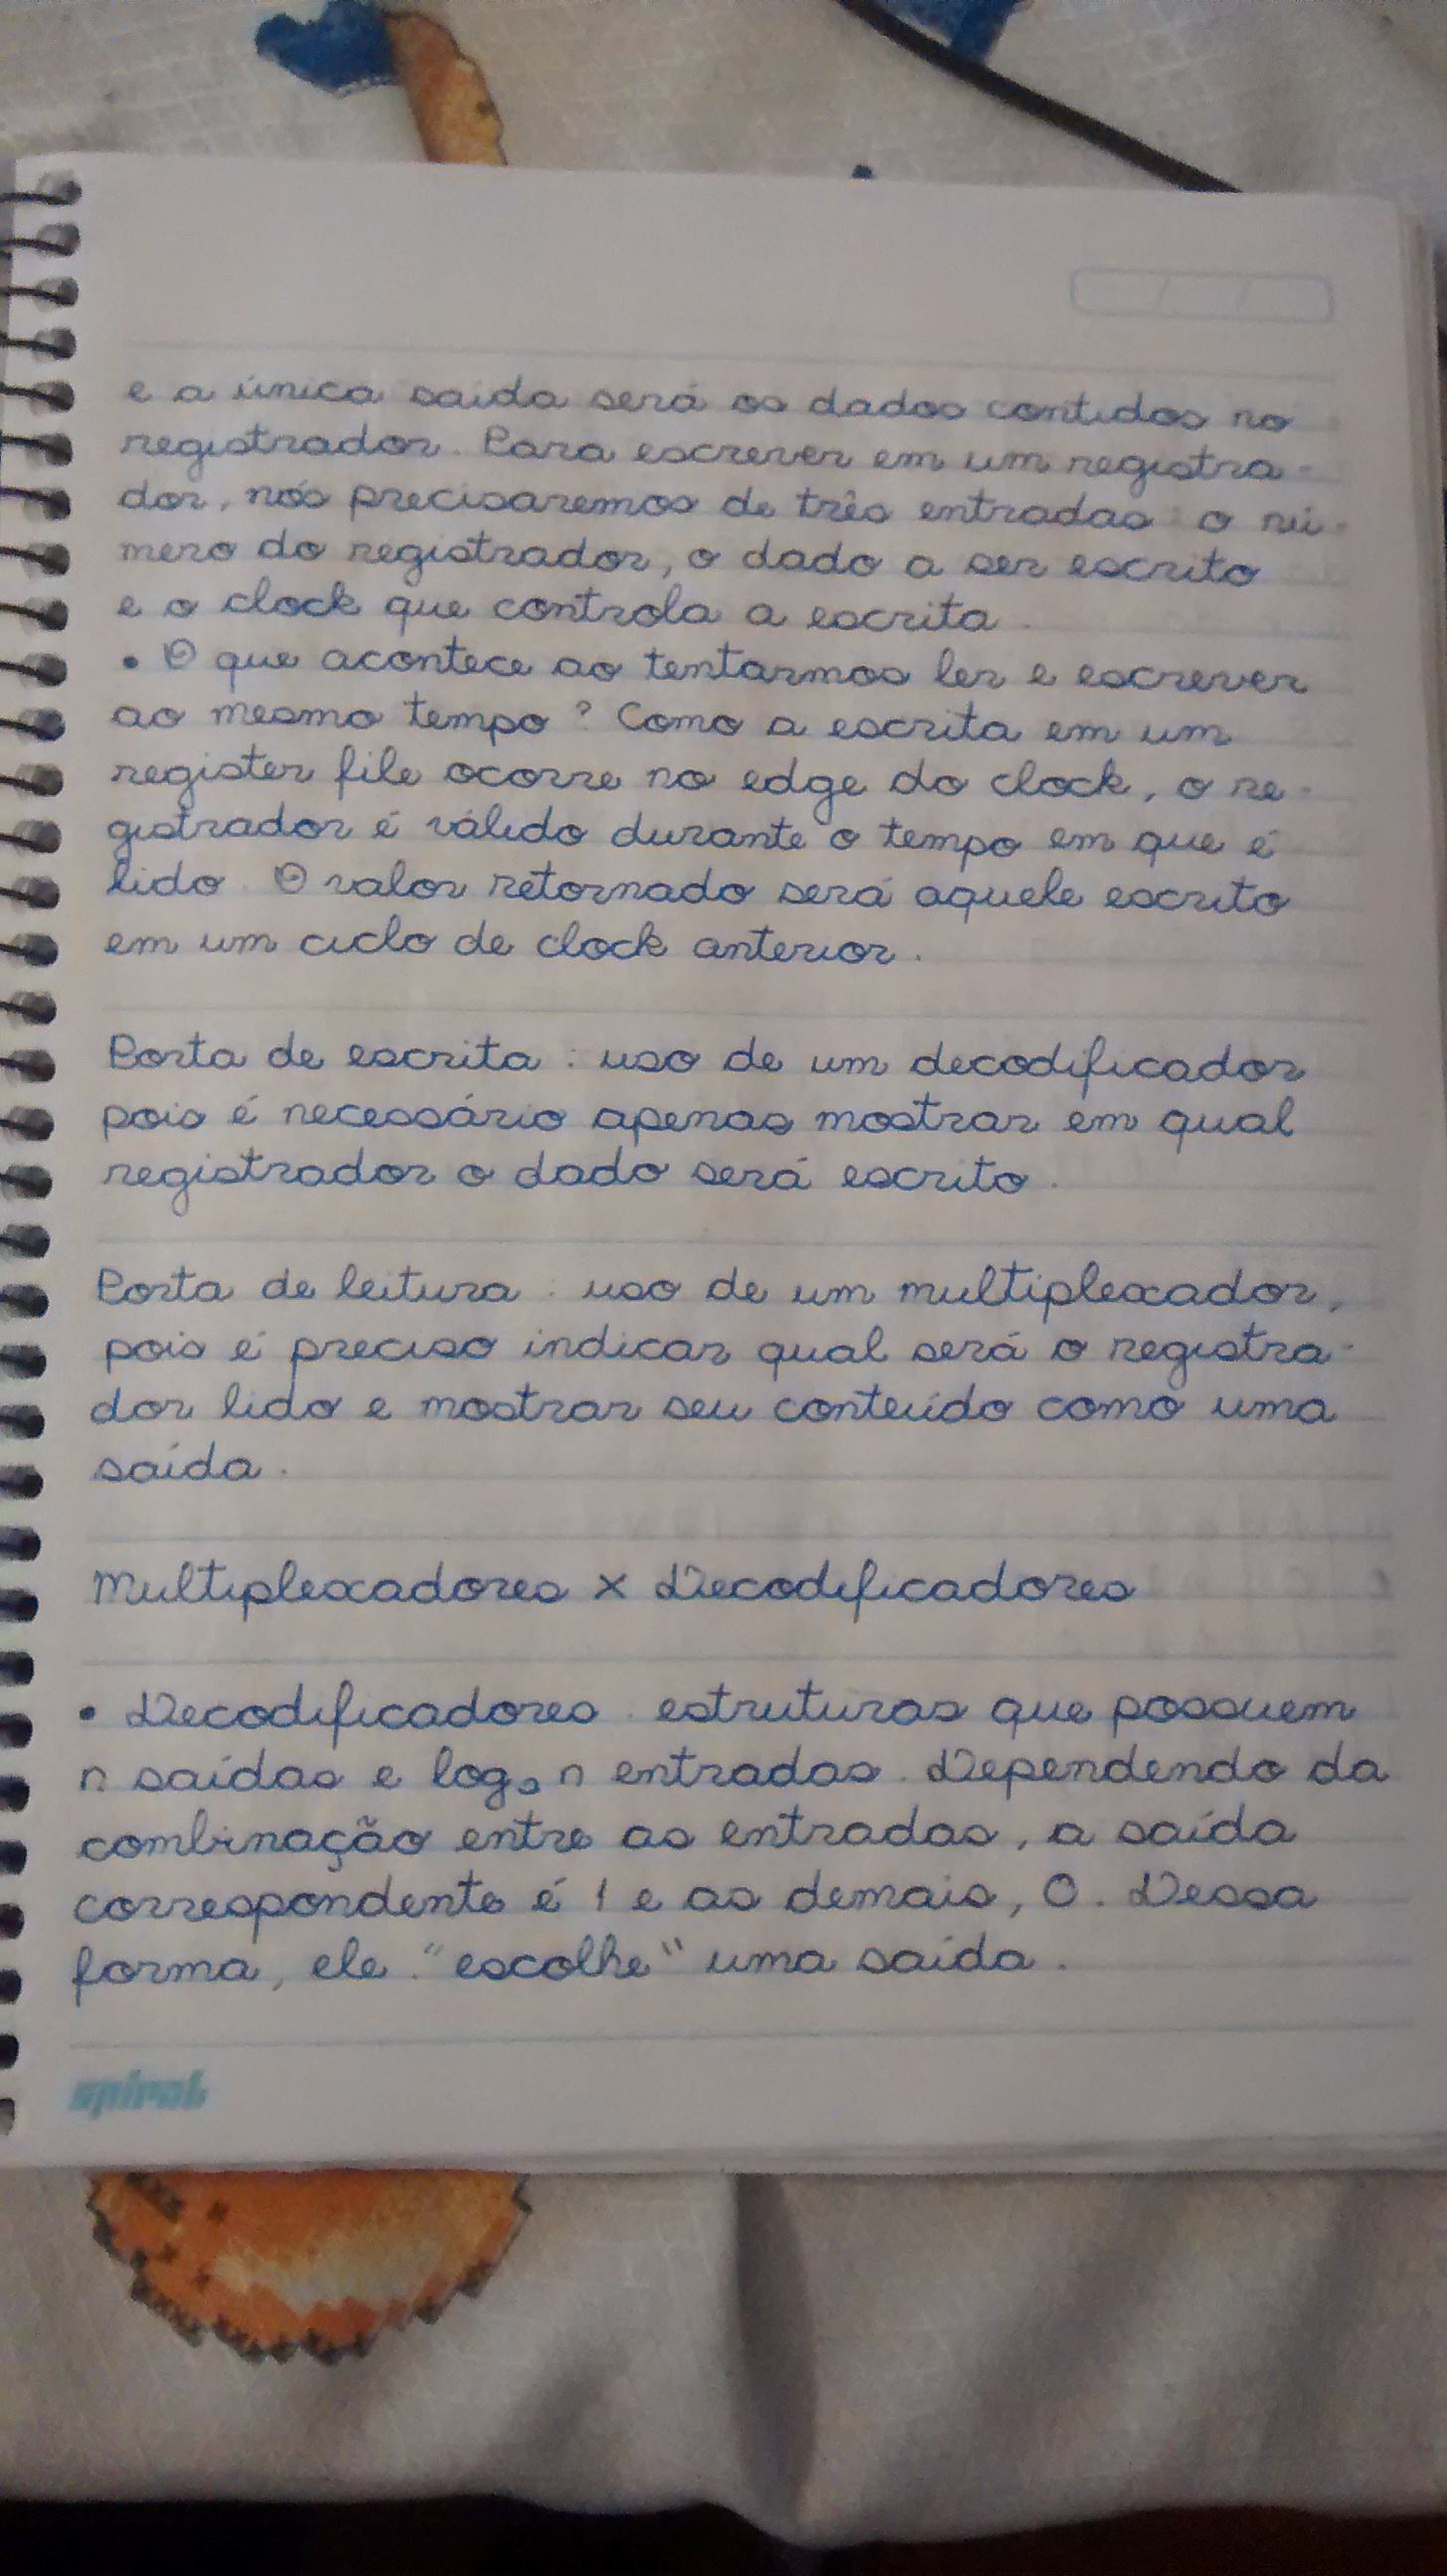 e a única saída será os dados contidos no
registrador. Para escrever em um registra-
dor, nós precisaremos de três entradas: o nú-
mero do registrador, o dado a ser escrito
e o clock que controla a escrita.
• O que acontece ao tentarmos ler e escrever
ao mesmo tempo? Como a escrita em um
register file ocorre no edge do clock, o re-
gistrador é válido durante o tempo em que é
lido. O valor retornado será aquele escrito
em um ciclo de clock anterior.
Porta de escrita: uso de um decodificador
pois é necessário apenas mostrar em qual
registrador o dado será escrito.
Porta de leitura: uso de um multiplexador,
pois é preciso indicar qual será o registra-
dor lido e mostrar seu conteúdo como uma
saída.
Multiplexadores x Decodificadores
• Decodificadores: estruturas que possuem
n saídas e log₂ n entradas. Dependendo da
combinação entre as entradas, a saída
correspondente é 1 e as demais, 0. Dessa
forma, ele "escolhe" uma saída.
spiral